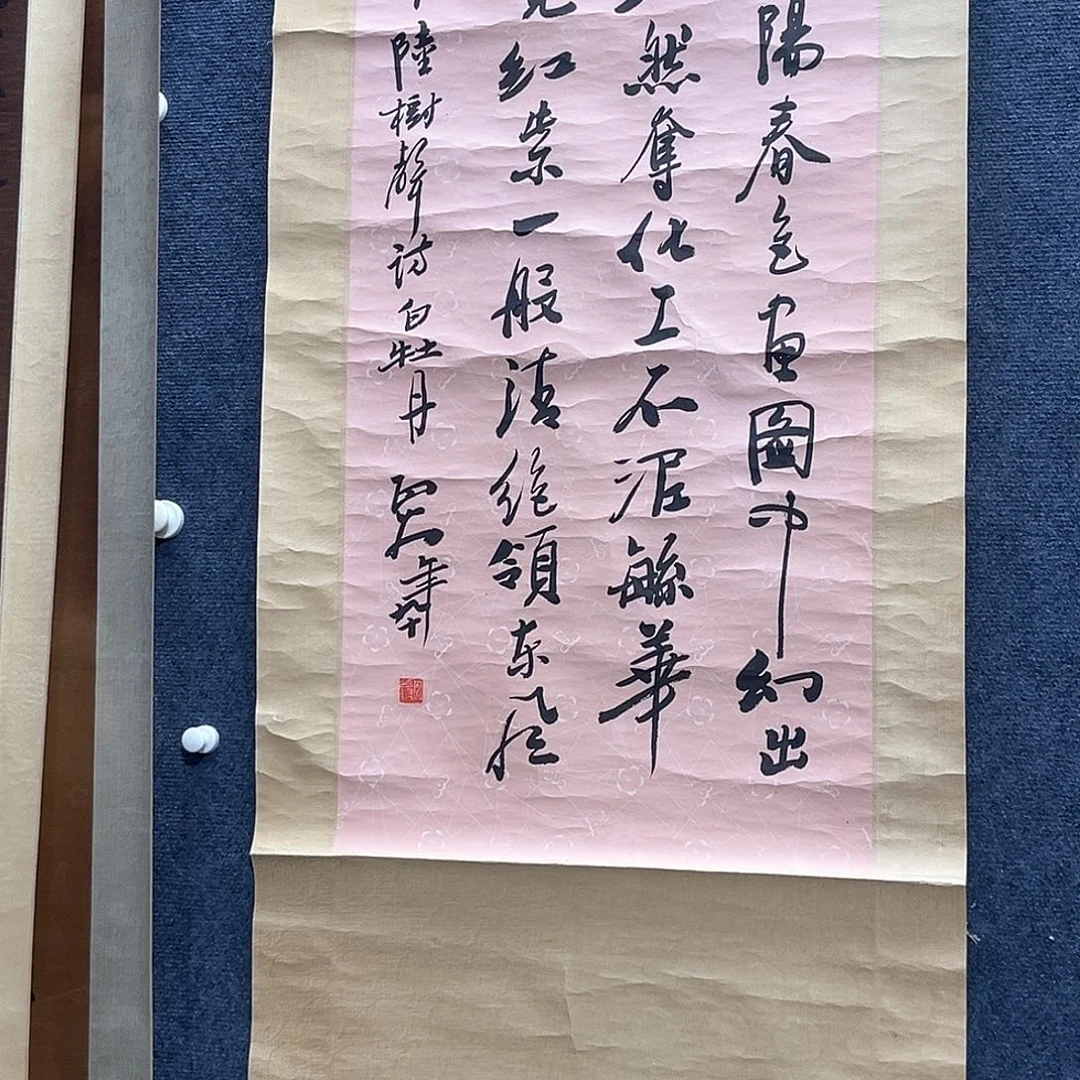 陽春色畫圖中幻出
然奪化工不泥繁華
紅紫一般清絕領東風
陸樹聲詩白牡丹